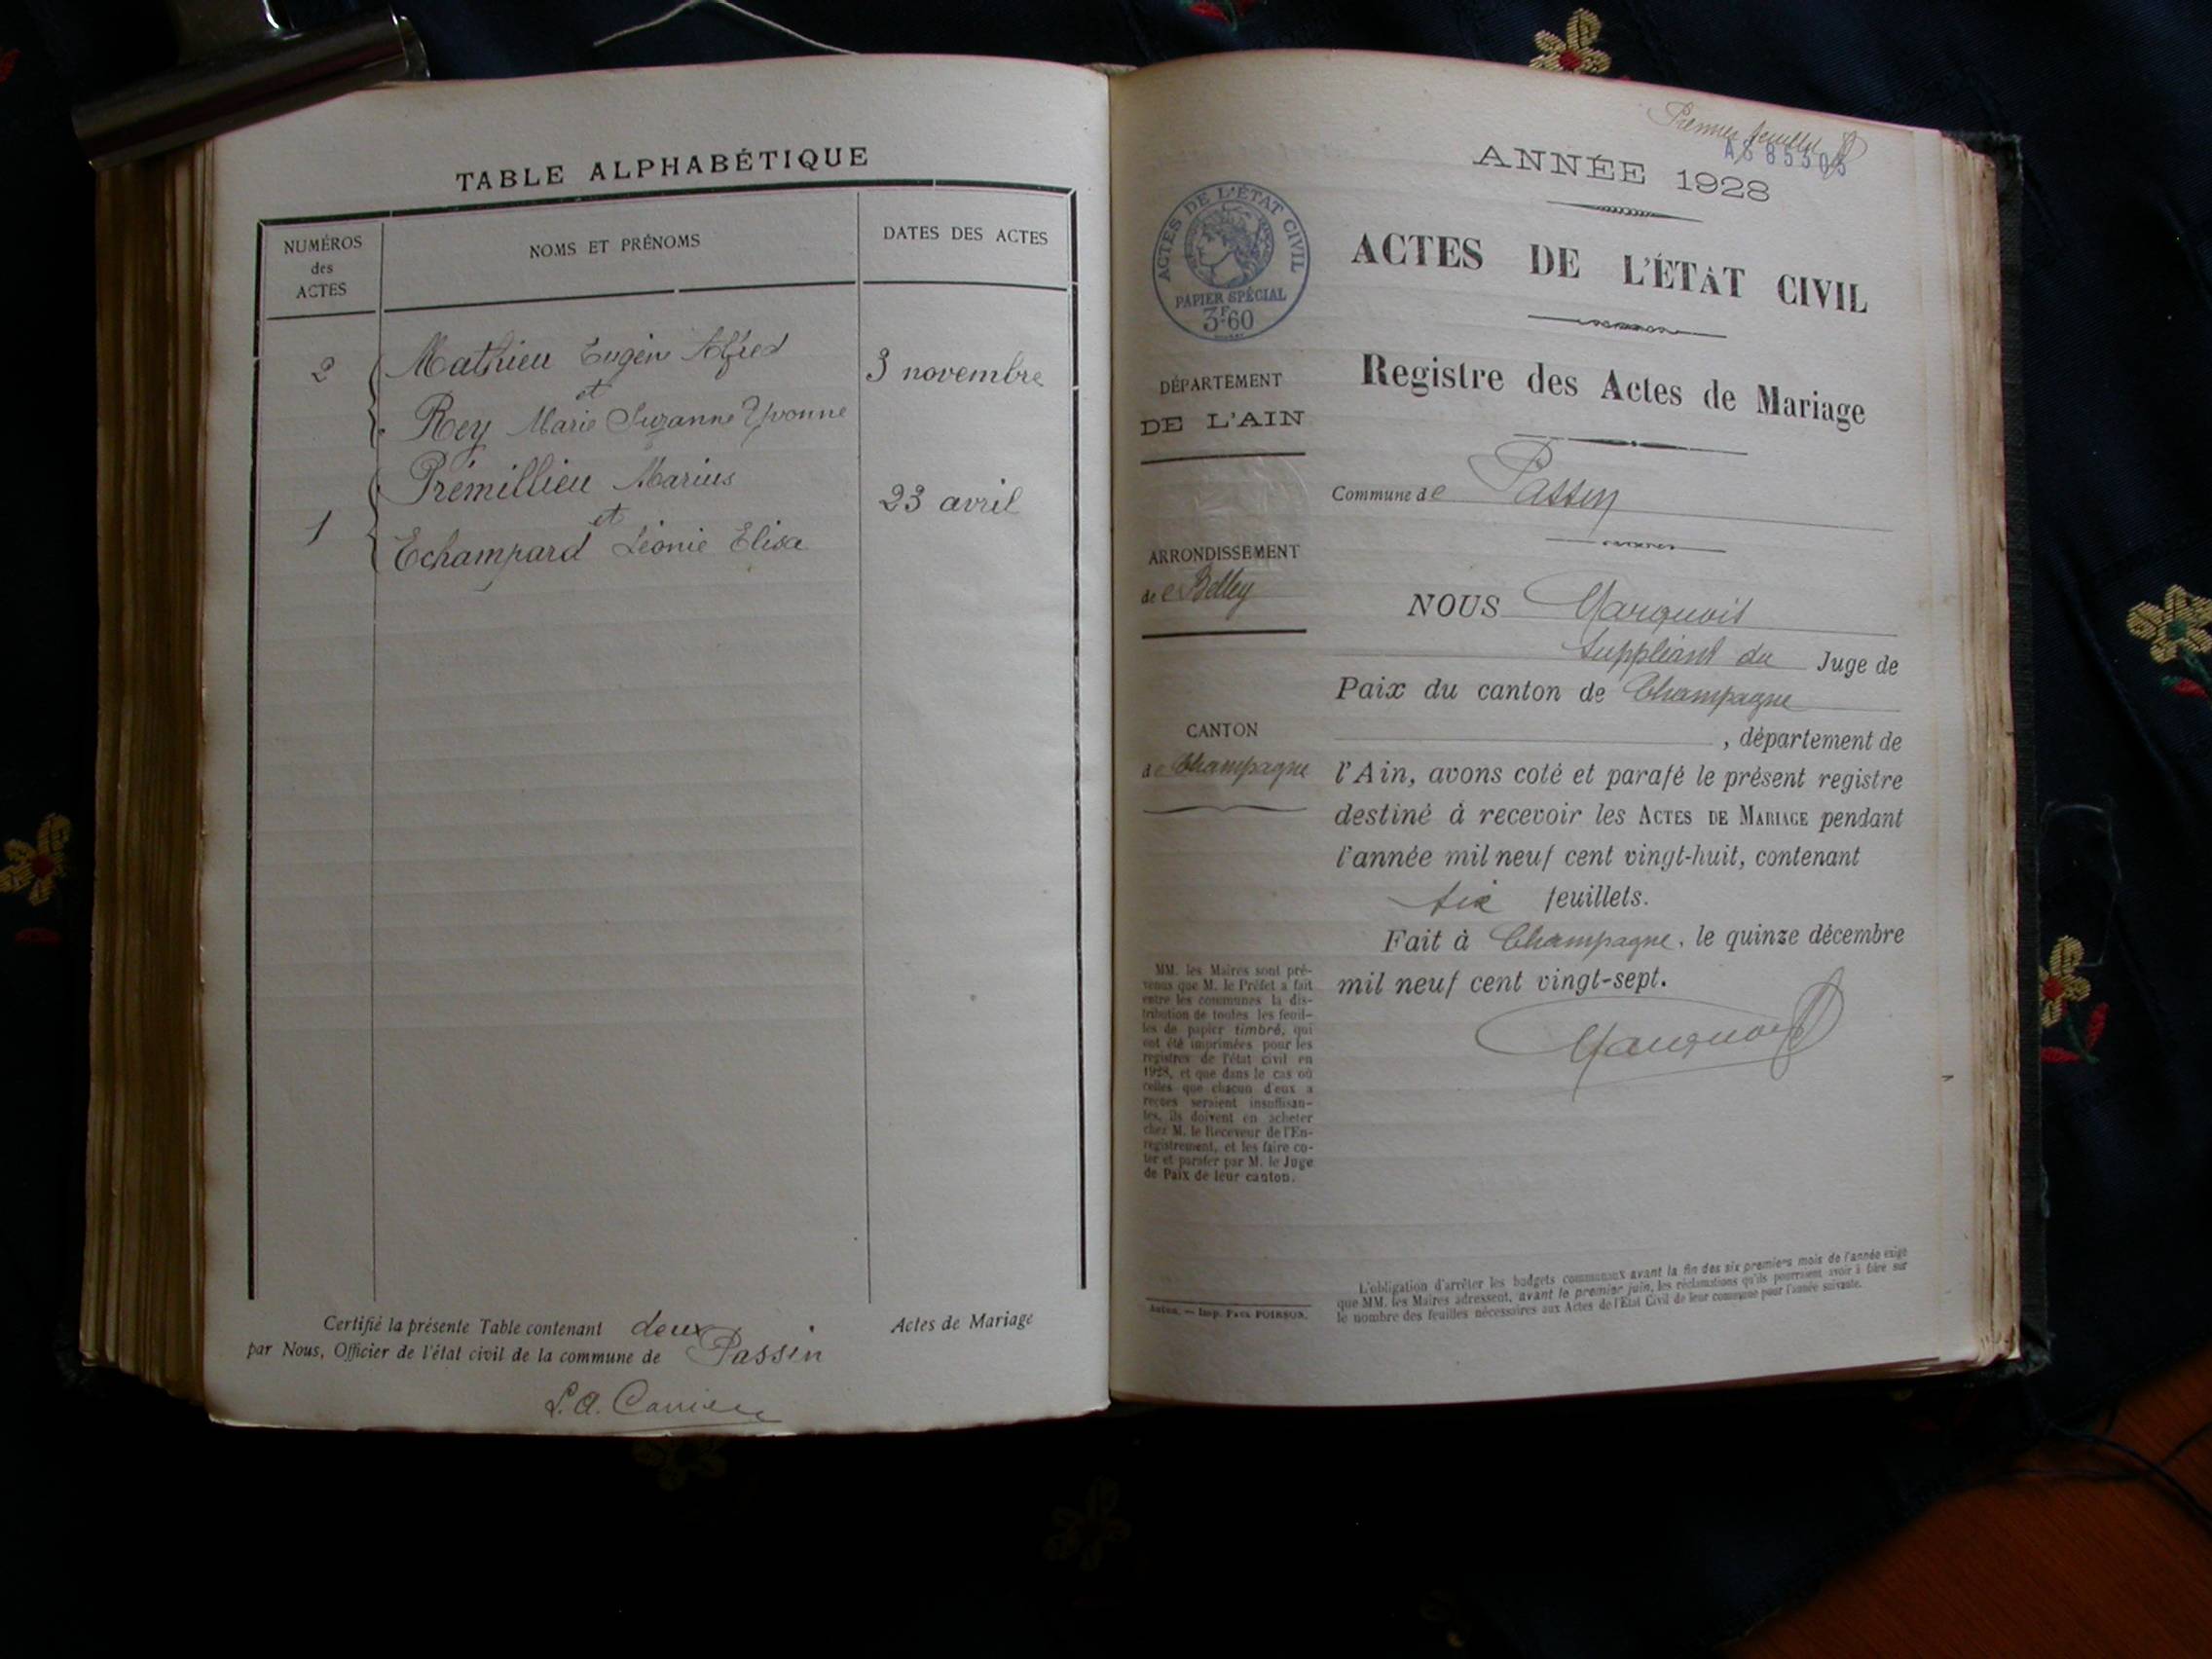 TABLE ALPHABÉTIQUE
NUMÉROS
des
ACTES
NOMS ET PRÉNOMS
DATES DES ACTES
2
Mathieu Eugène Alfred
et
Rey Marie Suzanne Yvonne
3 novembre
1
Prémillieu Marius
et
Echampard Léonie Elisa
23 avril
Certifié la présente Table contenant deux Actes de Mariage
par Nous, Officier de l'état civil de la commune de Passin
Premier feuillet
ANNÉE 1928
ACTES DE L'ÉTAT CIVIL
PAPIER SPÉCIAL
3F60
ACTES DE L'ÉTAT CIVIL
Registre des Actes de Mariage
DÉPARTEMENT
DE L'AIN
Commune de Passin
ARRONDISSEMENT
de Belley
CANTON
de Champagne
NOUS
Suppléant du Juge de
Paix du canton de Champagne
, département de
l'Ain, avons coté et parafé le présent registre
destiné à recevoir les ACTES DE MARIAGE pendant
l'année mil neuf cent vingt-huit, contenant
six feuillets.
Fait à Champagne, le quinze décembre
mil neuf cent vingt-sept.
MM. les Maires sont pré-
venus que M. le Préfet a fait
entre les communes la dis-
tribution de toutes les feuil-
les de papier timbré, qui
ont été imprimées pour les
registres de l'état civil en
1928, et que dans le cas où
celles que chacun d'eux a
reçues seraient insuffisan-
tes, ils doivent en acheter
chez M. le Receveur de l'En-
registrement, et les faire co-
ter et parafer par M. le Juge
de Paix de leur canton.
Imp. PAUL POIRSON.
L'obligation d'arrêter les budgets communaux avant la fin des six premiers mois de l'année exige
que MM. les Maires adressent, avant le premier juin, les réclamations qu'ils pourraient avoir à faire sur
le nombre des feuilles nécessaires aux Actes de l'État Civil de leur commune pour l'année suivante.